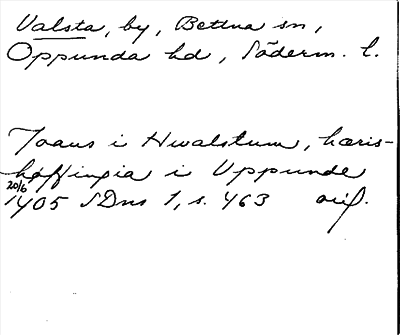 Valsta, by, Bettna sn,
Oppunda hd, Söderm. l.
Joans i Hwalstum,hæris-
høffingia i Uppunde
20/6
1405 SDns 1, s. 463 orig.